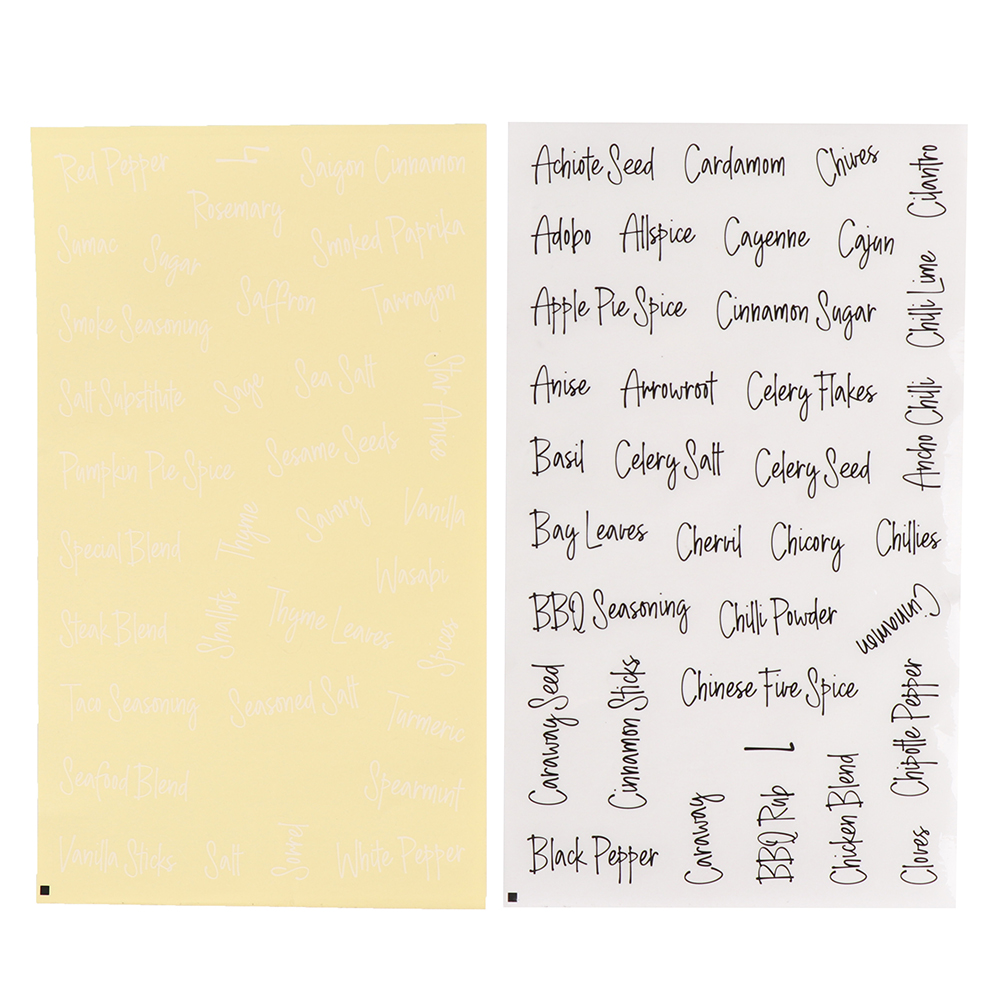 Red Pepper
4
Saigon Cinnamon
Rosemary
Sumac
Sugar
Smoked Paprika
Saffron
Tarragon
Smoke Seasoning
Salt Substitute
Sage
Sea Salt
Star Anise
Pumpkin Pie Spice
Sesame Seeds
Special Blend
Thyme
Savory
Vanilla
Wasabi
Steak Blend
Shallots
Thyme Leaves
Spices
Taco Seasoning
Seasoned Salt
Turmeric
Seafood Blend
Spearmint
Vanilla Sticks
Salt
Sorrel
White Pepper
Achiote Seed
Cardamom
Chives
Cilantro
Adobo
Allspice
Cayenne
Cajun
Apple Pie Spice
Cinnamon Sugar
Chilli Lime
Anise
Arrowroot
Celery Flakes
Ancho Chilli
Basil
Celery Salt
Celery Seed
Bay Leaves
Chervil
Chicory
Chillies
BBQ Seasoning
Chilli Powder
Cinnamon
Caraway Seed
Cinnamon Sticks
Chinese Five Spice
Chipotle Pepper
1
Black Pepper
Caraway
BBQ Rub
Chicken Blend
Cloves